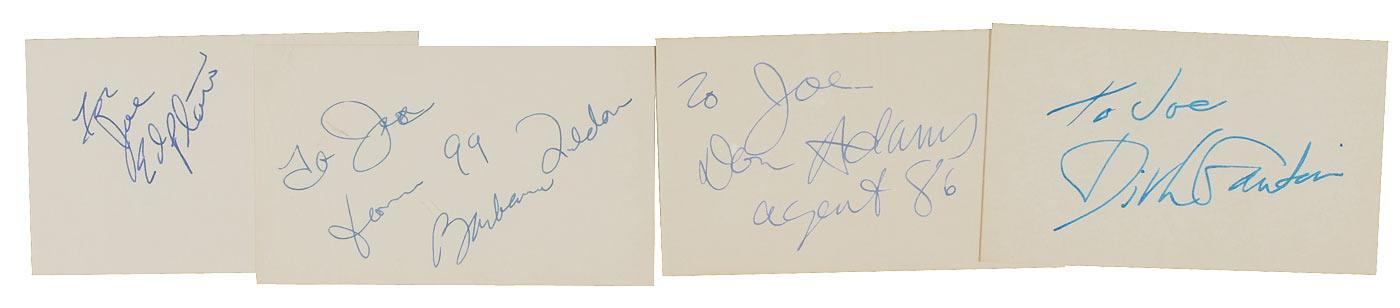 for
Joe
Ed Platt
To Joe
from 99
Barbara Feldon
To Joe
Don Adams
agent 86
To Joe
Dick Gautier